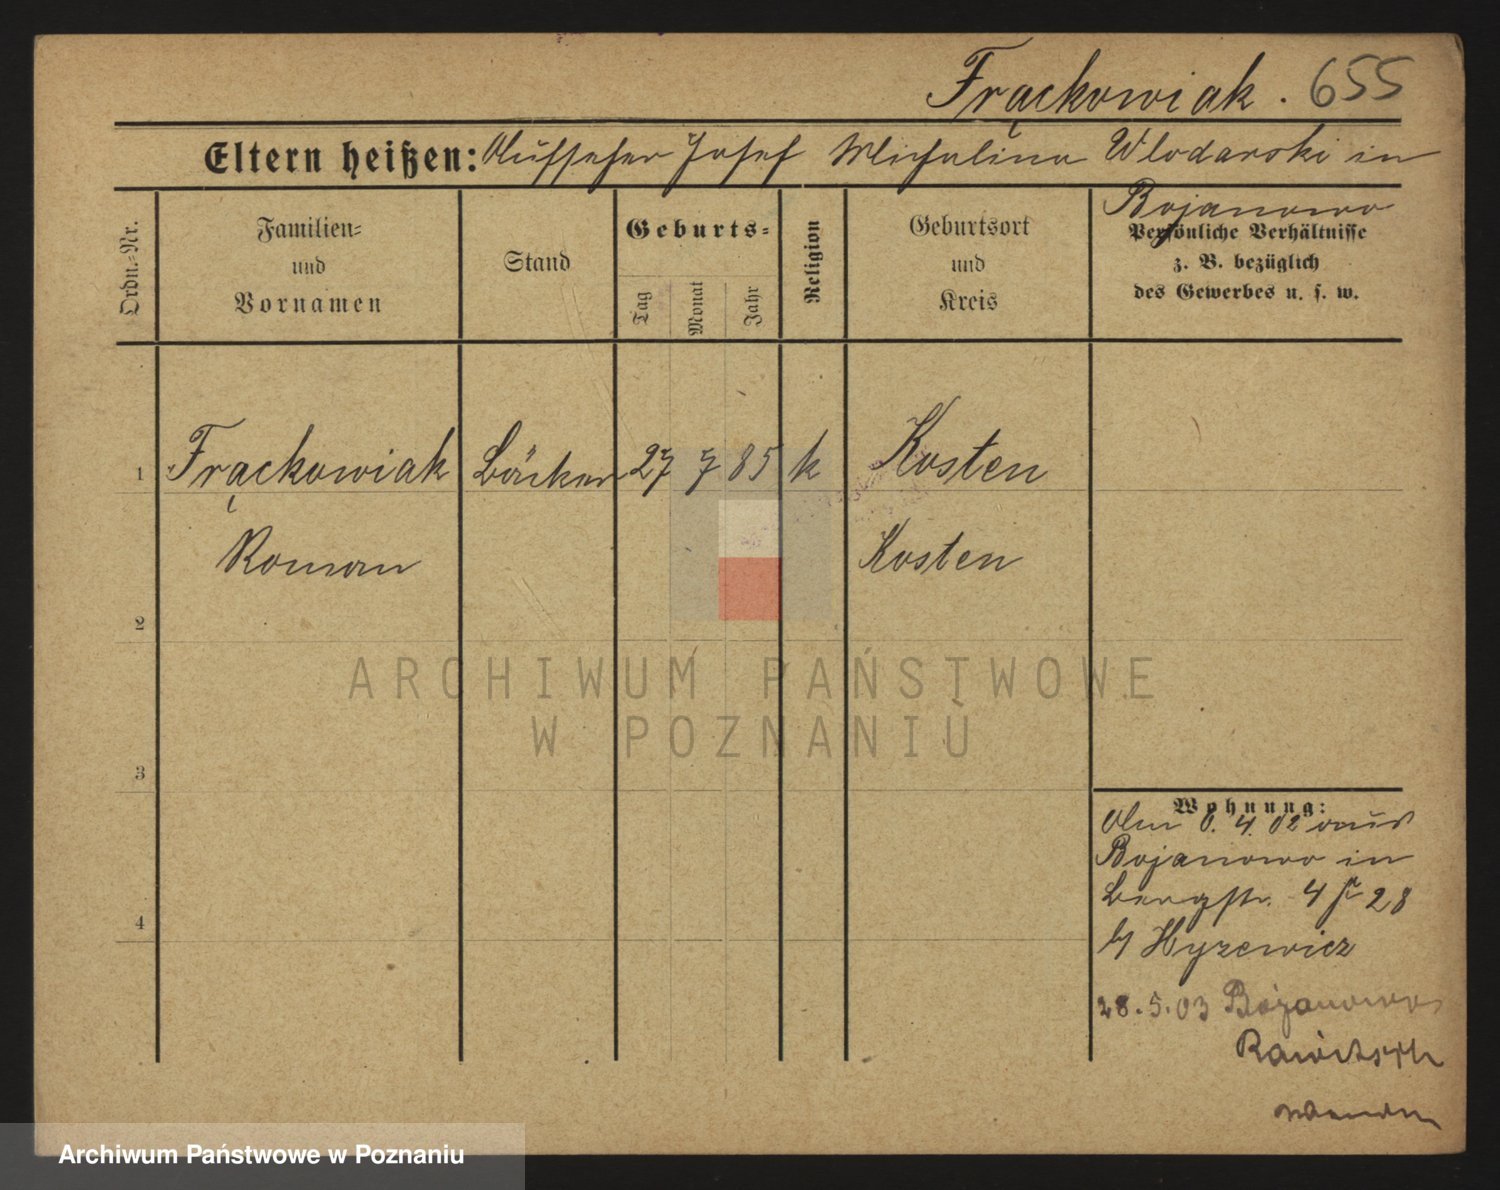 Frąckowiak. 655
Eltern heißen: Aufseher Josef Michalina Wlodarski in
Bojanowo
Ordn.=Nr.
Familien=
und
Vornamen
Stand
Geburts=
Tag
Monat
Jahr
Religion
Geburtsort
und
Kreis
Persönliche Verhältnisse
z. B. bezüglich
des Gewerbes u. s. w.
1 Frąckowiak Bäcker 27 7 85 k Kosten
Roman Kosten
2
3
4
Wohnung:
Am 8. 4. 02 aus
Bojanowo in
Bergstr. 4 28
b/ Hyzewicz
28. 5. 03 Bojanowo
Rawitsch
ARCHIWUM PAŃSTWOWE
W POZNANIU
Archiwum Państwowe w Poznaniu